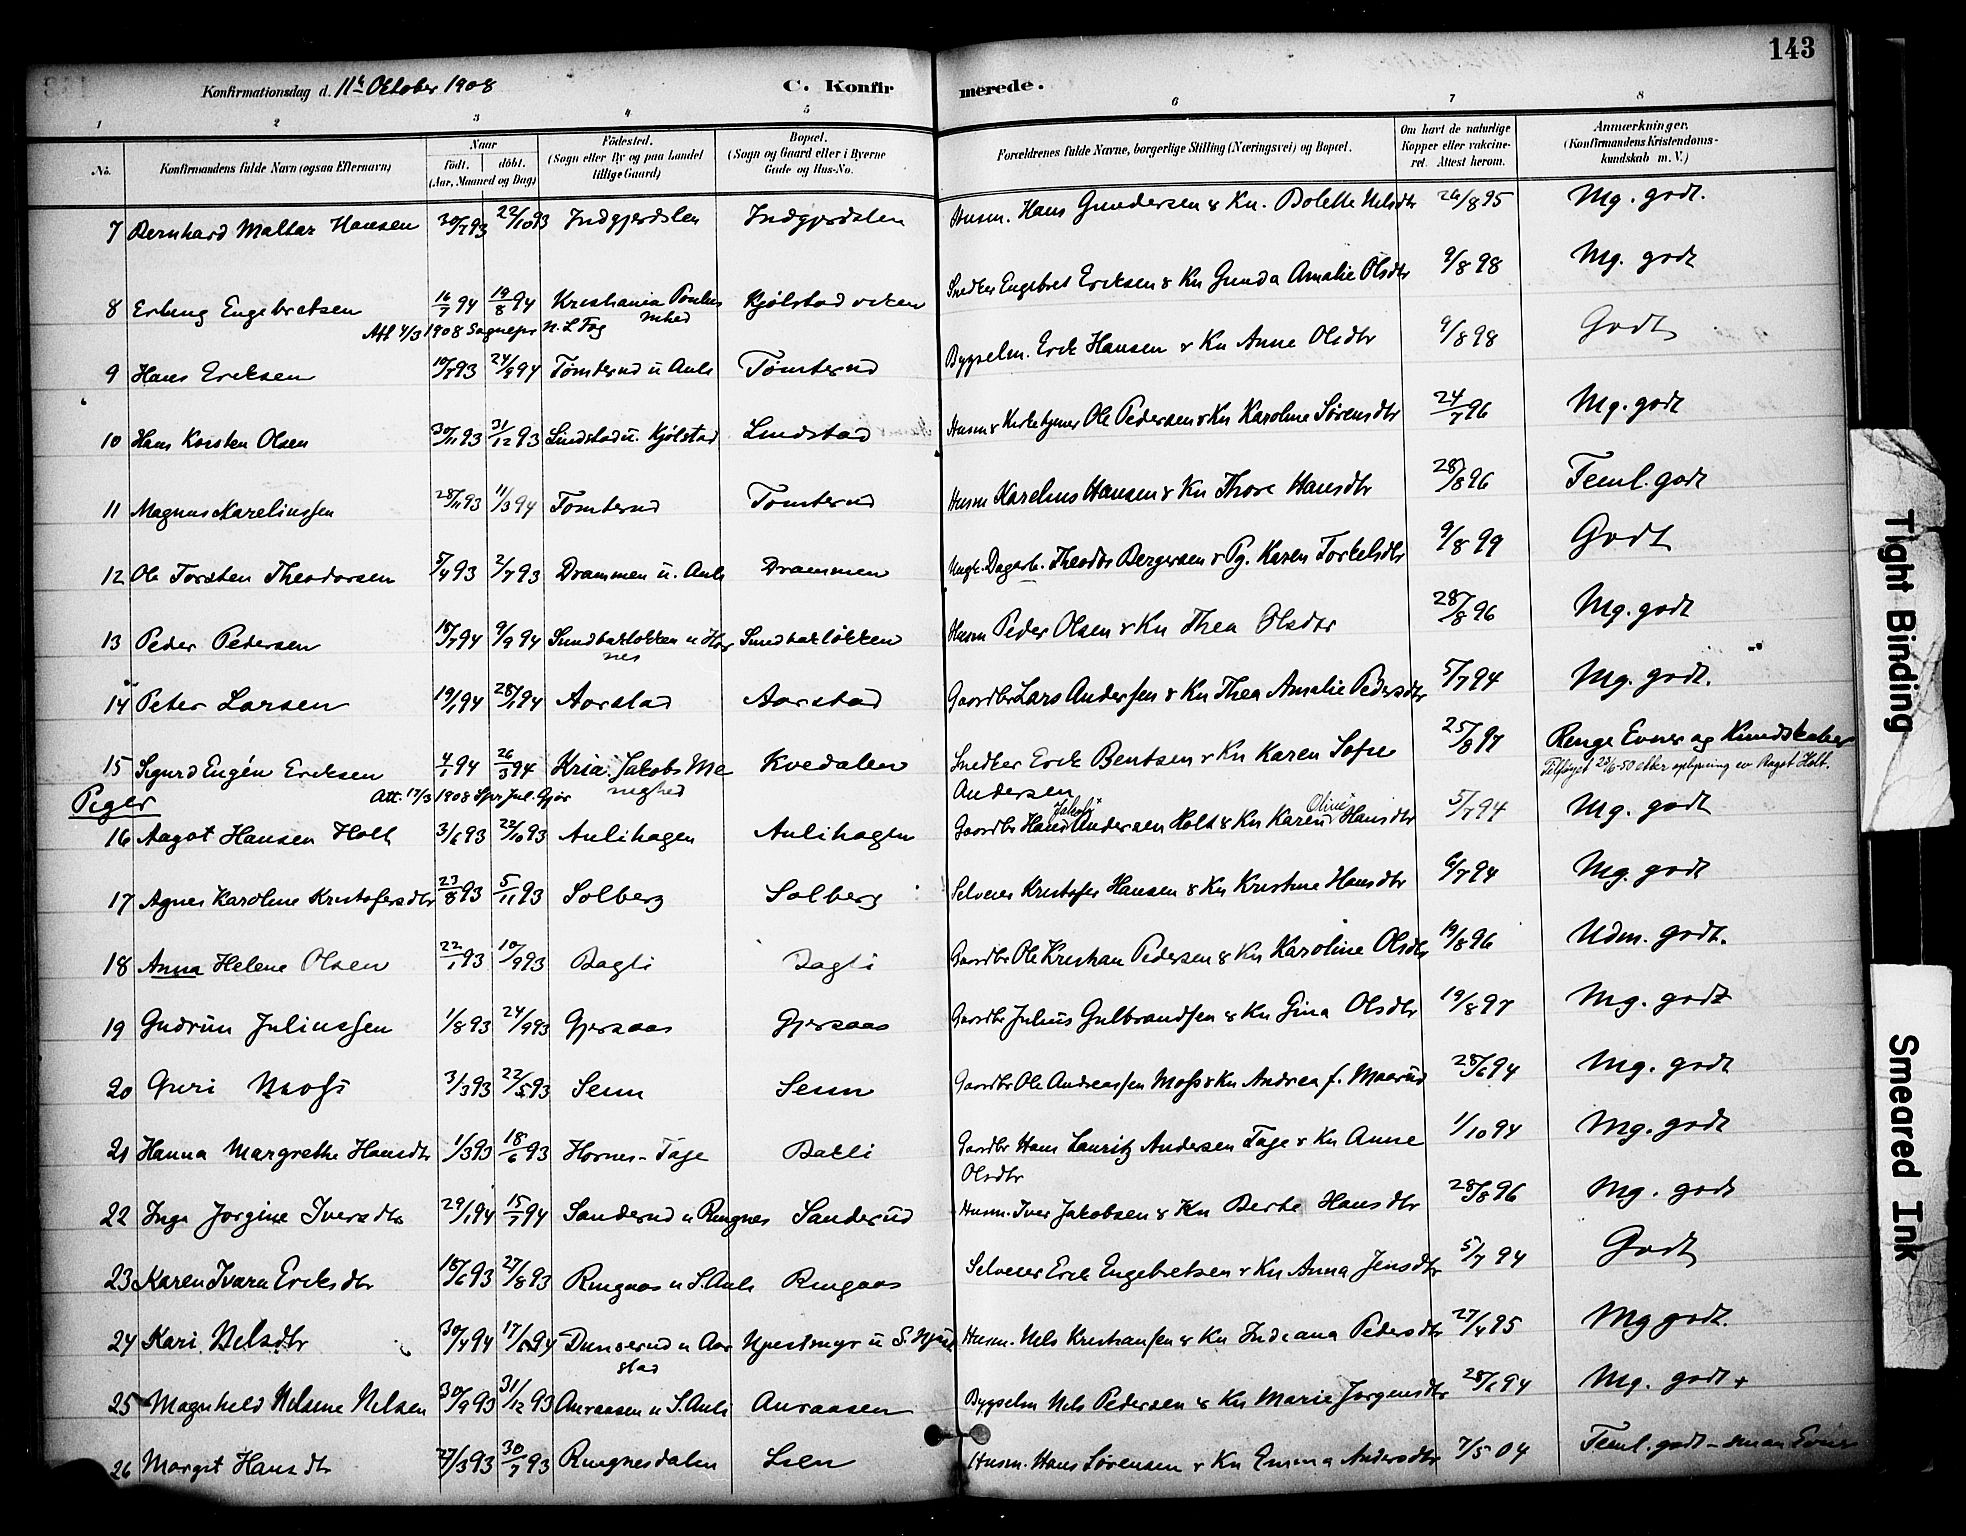 143
Konfirmationsdag d. 11te Oktober 1908 C. Konfir merede.
1 2 3 4 5 6 7 8
No. Konfirmandens fulde Navn (ogsaa Efternavn) Naar Født. døbt. (Aar, Maaned og Dag) Fødested. (Sogn eller By og paa Landet tillige Gaard) Bopæl. (Sogn og Gaard eller i Byerne Gade og Hus-No. Forældrenes fulde Navne, borgerlige Stilling (Næringsvei) og Bopæl. Om havt de naturlige Kopper eller vakcineret. Attest herom. Anmærkninger. (Konfirmandens Kristendomskundskab m. V.)
7 Bernhard Maltar Hansen 30/7 93 22/10 93 Indgjerdslen Indgjerdslen Husm. Hans Gundersen & Kn. Bolette Nilsdtr 26/8 95 Mg. godt.
8 Erling Engebretsen 16/7 94 19/8 94 Kristiania Paulus mhed Kjølstad Snedker Engebret Eriksen & Kn Gunda Amalie Olsdtr 9/8 98 Mg. godt
Att 4/3 1908 Sognepr N. L. Fog
9 Hans Eriksen 10/8 93 24/8 94 Tømterud u Auli Tomterud Bygselm. Erik Hansen & Kn Anne Olsdtr 9/8 98 Godt
10 Hans Korsten Olsen 30/11 93 31/12 93 Lindstad u. Kjølstad Lindstad Husm & Kirketjener Ole Pedersen & Kn Karoline Sørensdtr 24/7 96 Mg. godt
11 Magnus Karelinssen 28/11 93 11/3 94 Tomterud Tomterud Husm Karelius Hansen & Kn Thore Hansdtr 28/8 96 Teml. godt
12 Ole Torsten Theodorsen 5/4 93 2/7 93 Drammen u. Auli Drammen Ungk. Dagarb. Theodor Bergersen & Pg. Karen Torkelsdtr 9/8 99 Godt
13 Peder Pedersen 18/7 94 9/9 94 Sundbakløkken u Hor nes Sundbakløkken Husm Peder Olsen & Kn Thea Olsdtr 28/8 96 Mg. godt
14 Peter Larsen 19/1 94 28/1 94 Aorstad Aarstad Gaardbr Lars Anderssen & Kn Thea Amalie Pedersdtr 5/7 94 Mg. godt.
15 Sigurd Eugén Eriksen 4/1 94 26/3 94 Kria. Jakobs Me nighed Kvedalen Snedker Erik Bentsen & Kn Karen Sofie Andersen 25/8 97 Ringe Evner og Kundskaber
Att. 17/3 1908 Spr Jul. Gjør
Tilføyet 23/6-50 etter oplysning av Aagot Holt.
Piger
16 Aagot Hansen Holt 3/6 93 22/10 93 Aulihagen Aulihagen Gaardbr Hans Jakob Andersen Holt & Kn Karen Oline Hansdtr 5/7 94 Mg. godt
17 Agnes Karoline Kristofersdtr 23/8 93 5/11 93 Solberg Solberg Selveier Kristofer Hansen & Kn Kristine Hansdtr 6/7 94 Mg. godt
18 Anna Helene Olsen 22/1 93 10/9 93 Dagli Dagli Gaardbr Ole Kristian Pedersen & Kn Karoline Olsdtr 19/8 96 Udm. godt.
19 Gudrun Julinssen 1/8 93 24/9 93 Gjersaas Gjersaas Gaardbr Julius Gulbrandsen & Kn Gina Olsdtr 19/8 97 Mg. godt
20 Guri Moss 3/3 93 22/5 93 Senn Senn Gaardbr Ole Andreassen Moss & Kn Andrea f. Maarud 28/6 94 Mg. godt
21 Hanna Margrethe Hansdtr 1/3 93 18/6 93 Hornes-Fage Bakli Gaardbr Hans Lauritz Andersen Fage & Kn Anne Olsdtr 1/10 94 Mg. godt
22 Inga Jørgine Iversdtr 29/1 94 15/7 94 Sanderud u Ringnes Sanderud Husm. Iver Jakobsen & Kn Berte Hansdtr 28/8 96 Mg. godt
23 Karen Ivara Eriksdtr 18/6 93 27/8 93 Ringaas u S. Auli Ringaas Selveier Erik Engebretsen & Kn Anna Jensdtr 5/7 94 Godt
24 Kari Nilsdtr 30/4 94 17/6 94 Dunserud u Aar stad u S. Husm. Nils Kristiansen & Kn Indiana Pedersdtr 27/4 95 Mg godt.
25 Magnhild Nilsine Nilsen 30/9 93 31/12 93 Auraasen u S. Auli Auraasen Bygselm Nils Pedersen & Kn Marie Jørgensdtr 28/6 94 Mg. godt +
26 Margit Hansdtr 27/3 93 30/7 93 Ringnesdalen Lien Husm. Hans Sørensen & Kn Emma Andersdtr 7/5 04 Teml. godt - smaa Evner
Tight Binding
Smeared Ink